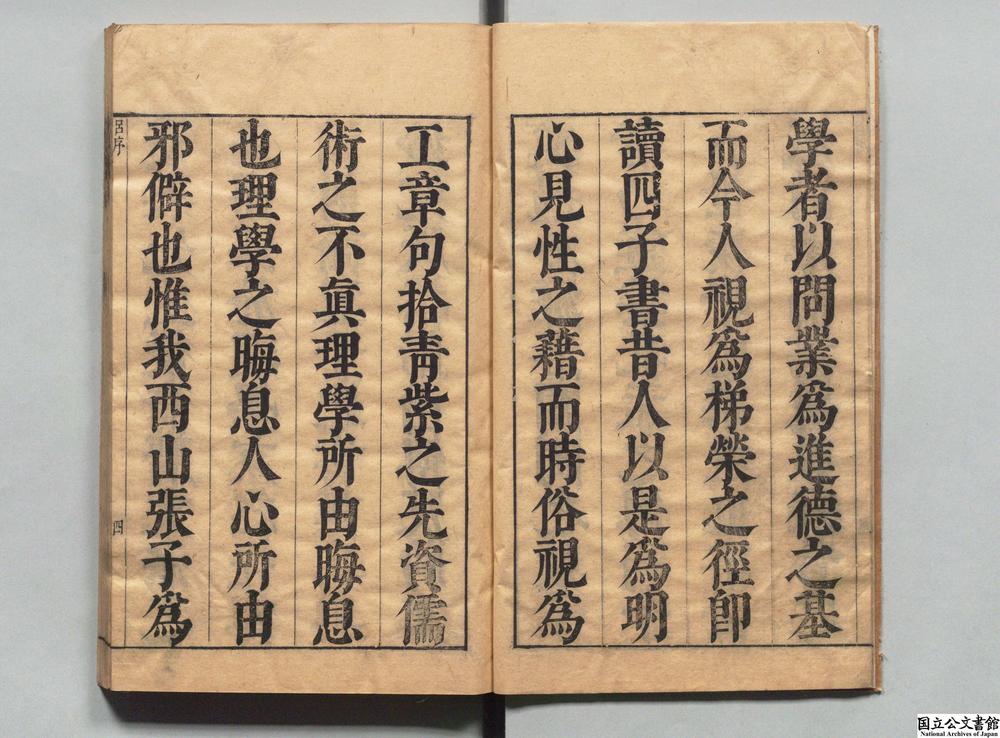 學者以問業爲進德之基
而今人視爲梯榮之徑卽
讀四子書昔人以是爲明
心見性之藉而時俗視爲
工章句拾靑紫之先資儒
術之不眞理學所由晦息
也理學之晦息人心所由
邪僻也惟我西山張子爲
呂序
四
国立公文書館
National Archives of Japan